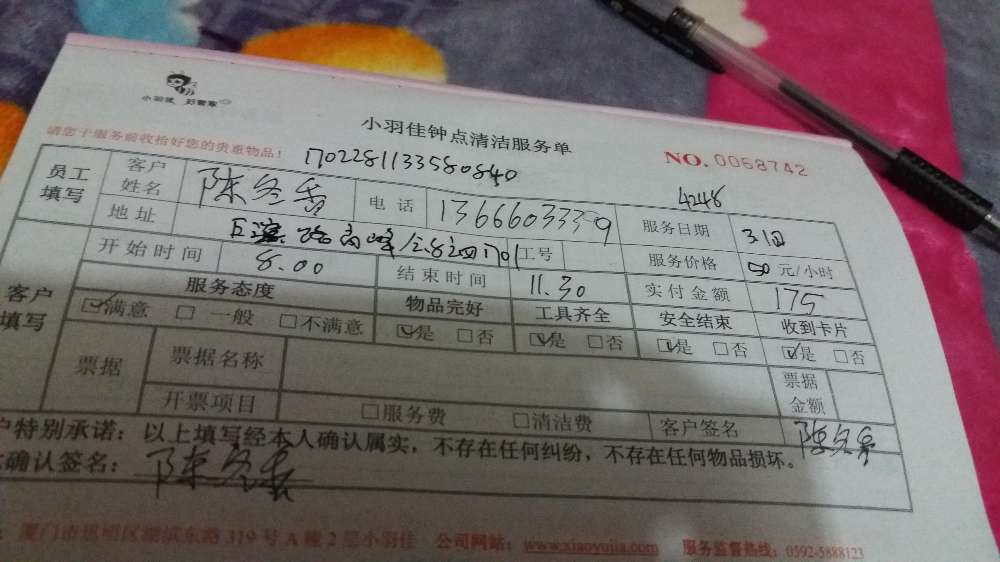 小羽佳 好管家
小羽佳钟点清洁服务单
请您于服务前收拾好您的贵重物品! 1702281133580840 NO. 0058742
4248
员工填写 客户姓名 陈冬香 电话 13666033399 服务日期 3.1
地址 路高峰 工号 服务价格 50 元/小时
开始时间 8.00 结束时间 11.30 实付金额 175
客户填写 服务态度 物品完好 工具齐全 安全结束 收到卡片
☑满意 □一般 □不满意 ☑是 □否 ☑是 □否 ☑是 □否 ☑是 □否
票据 票据名称 票据金额
开票项目 □服务费 □清洁费 客户签名 陈冬香
户特别承诺:以上填写经本人确认属实,不存在任何纠纷,不存在任何物品损坏。
确认签名: 陈冬香
厦门市思明区湖滨东路 319 号 A 幢 2 层小羽佳 公司网站: www.xiaoyujia.com 服务监督热线: 0592-5888123